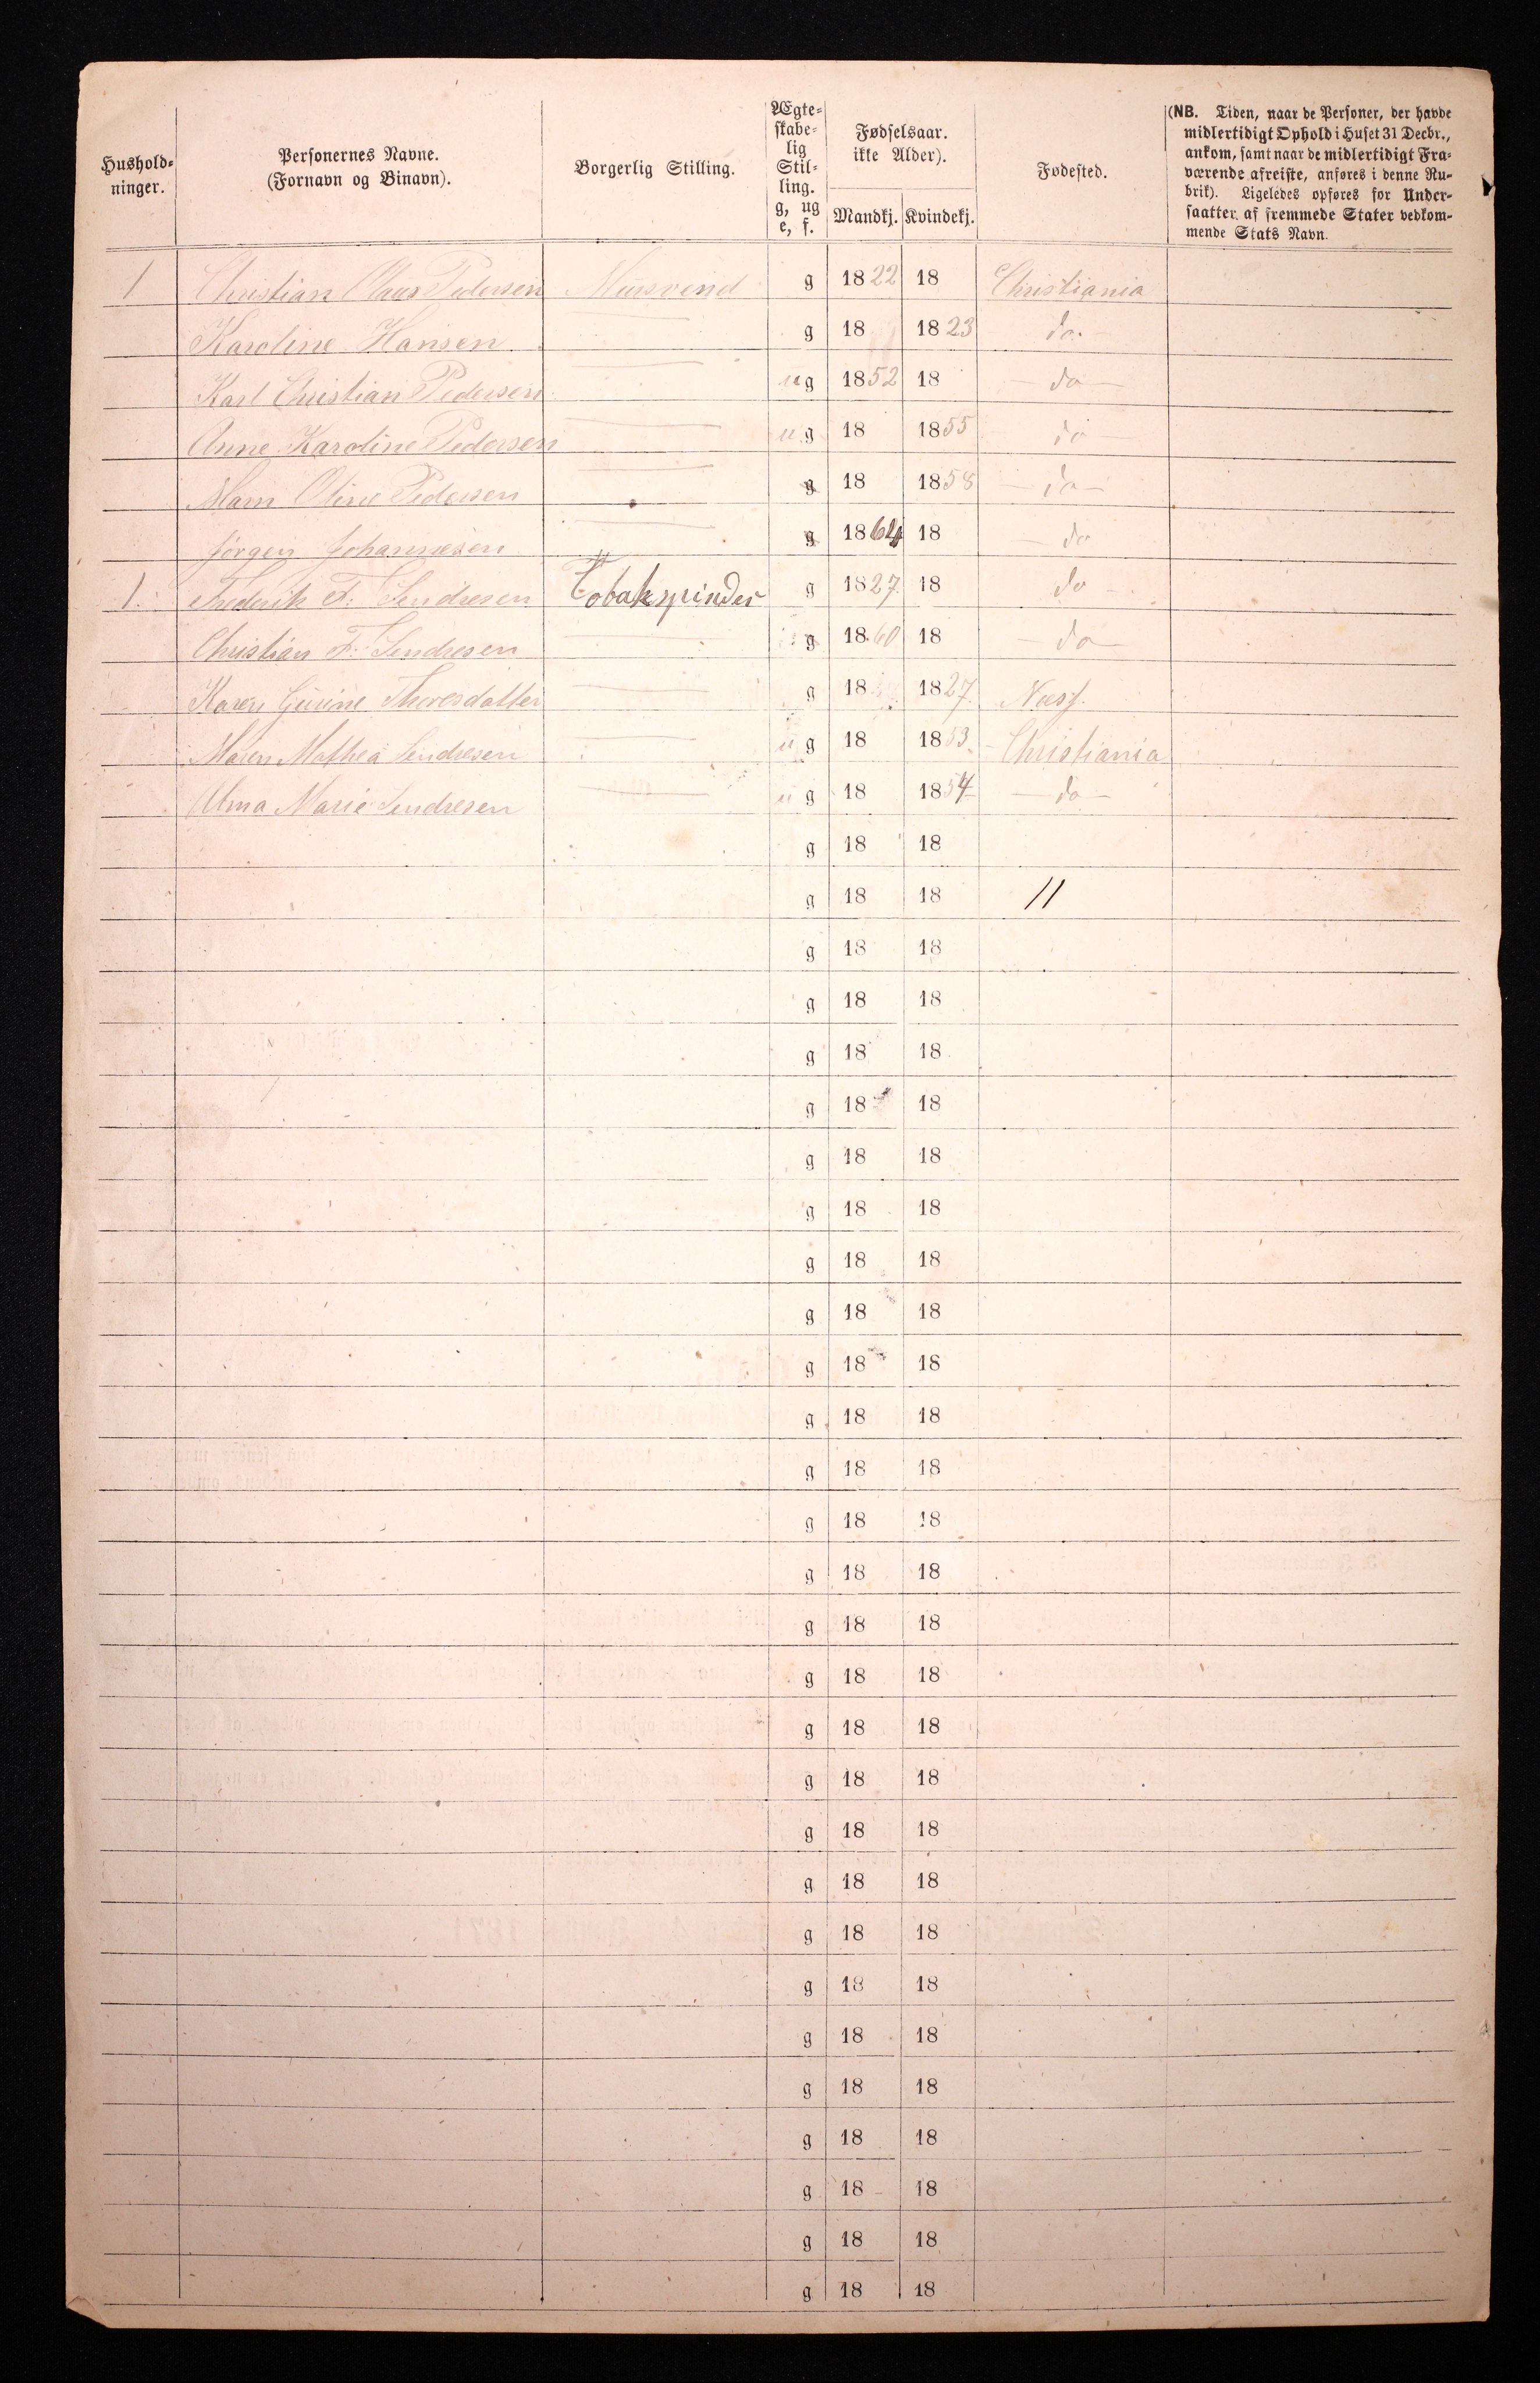 Hushold-
ninger.
Personernes Navne.
(Fornavn og Binavn).
Borgerlig Stilling.
Ægte-
skabe-
lig
Stil-
ling.
g, ug
e, f.
Fødselsaar.
ikke Alder).
Mandkj. Kvindekj.
Fødested.
(NB. Tiden, naar de Personer, der havde
midlertidigt Ophold i Huset 31 Decbr.,
ankom, samt naar de midlertidigt Fra-
værende afreiste, anføres i denne Ru-
brik). Ligeledes opføres for Under-
saatter af fremmede Stater vedkom-
mende Stats Navn.
1 Christian Olaus Pedersen Mursvend g 1822 18 Christiania
Karoline Hansen g 18 1823 do.
Karl Christian Pedersen ug 1852 18 — do —
Anne Karoline Pedersen ug 18 1855 do —
Oline Pedersen g 18 1858 — do —
Jørgen Johannesen g 1864 18 — do
1. Frederik F. Sendresen Tobakspinder g 1827 18 do
Christian F. Sendresen g 1860 18 — do —
Karen Thoresdatter g 18 1827 Næss.
Maren Mathea Sendresen ug 18 1853. Christiania
Marie Sendresen ug 18 1854 — do —
g 18 18
g 18 18 11
g 18 18
g 18 18
g 18 18
g 18 18
g 18 18
g 18 18
g 18 18
g 18 18
g 18 18
g 18 18
g 18 18
g 18 18
g 18 18
g 18 18
g 18 18
g 18 18
g 18 18
g 18 18
g 18 18
g 18 18
g 18 18
g 18 18
g 18 18
g 18 18
g 18 18
g 18 18
g 18 18